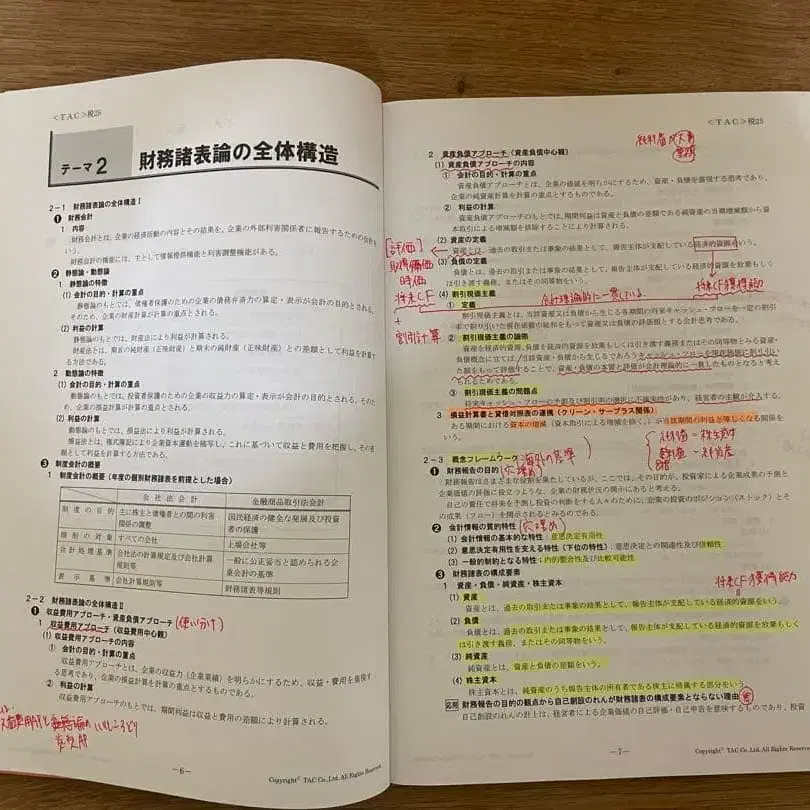 <TAC>税25
テーマ2 財務諸表論の全体構造
2-1 財務諸表論の全体構造Ⅰ
❶ 財務会計
1 内容
財務会計とは、企業の経済活動の内容とその結果を、企業の外部利害関係者に報告するための会計をいう。
財務会計の機能には、主として情報提供機能と利害調整機能がある。
❷ 静態論・動態論
1 静態論の特徴
(1) 会計の目的・計算の重点
静態論のもとでは、債権者保護のための企業の債務弁済力の算定・表示が会計の目的とされる。
そのため、企業の財産計算が計算の重点とされる。
(2) 利益の計算
静態論のもとでは、財産法により利益が計算される。
財産法とは、期首の純財産(正味財産)と期末の純財産(正味財産)との差額として利益を計算する方法である。
2 動態論の特徴
(1) 会計の目的・計算の重点
動態論のもとでは、投資者保護のための企業の収益力の算定・表示が会計の目的とされる。そのため、企業の損益計算が計算の重点とされる。
(2) 利益の計算
動態論のもとでは、損益法により利益が計算される。
損益法とは、複式簿記により企業資本運動を描写し、これに基づいて収益と費用を把握し、その差額として利益を計算する方法である。
❸ 制度会計の概要
1 制度会計の概要(年度の個別財務諸表を前提とした場合)
会社法会計 金融商品取引法会計
制度の目的 主に株主と債権者との間の利害関係の調整 国民経済の健全な発展及び投資者の保護
規制の対象 すべての会社 上場会社等
会計処理基準 会社法の計算規定及び会社計算規則等 一般に公正妥当と認められる企業会計の基準
表示基準 会社計算規則等 財務諸表等規則
2-2 財務諸表論の全体構造Ⅱ
❶ 収益費用アプローチ・資産負債アプローチ(使い分け)
1 収益費用アプローチ(収益費用中心観)
(1) 収益費用アプローチの内容
① 会計の目的・計算の重点
収益費用アプローチとは、企業の収益力(企業業績)を明らかにするため、収益・費用を重視する思考であり、企業の損益計算を計算の重点とするものである。
② 利益の計算
収益費用アプローチのもとでは、期間利益は収益と費用の差額により計算する。
-6-
Copyright© TAC Co.,Ltd. All Rights Reserved.
<TAC>税25
2 資産負債アプローチ(資産負債中心観)
(1) 資産負債アプローチの内容
① 会計の目的・計算の重点
資産負債アプローチとは、企業の価値を明らかにするため、資産・負債を重視する思考であり、企業の純資産計算を計算の重点とするものである。
② 利益の計算
資産負債アプローチのもとでは、期間利益は資産と負債の差額である純資産の当期増減額から資本取引による増減額を排除することにより計算する。
(2) 資産の定義
資産とは、過去の取引または事象の結果として、報告主体が支配している経済的資源をいう。
(3) 負債の定義
負債とは、過去の取引または事象の結果として、報告主体が支配している経済的資源を放棄もしくは引き渡す義務、またはその同等物をいう。
[評価]
取得価価
時価
将来CF
+
割引計算
将来CF獲得能力
(4) 割引現価主義
会計理論的に一貫している。
① 定義
割引現価主義とは、当該資産又は負債から生じる各期間の将来キャッシュ・フローを一定の割引率で割り引いた現在価値の総和をもって資産又は負債の評価額とする会計思考である。
② 割引現価主義の論拠
資産を経済的資源、負債を経済的資源を放棄もしくは引き渡す義務またはその同等物とみる資産・負債概念に立てば、当該資産・負債から生じるであろうキャッシュ・フローを現在価値に割り引いた額をもって評価することで、資産・負債の本質と評価が会計理論的に一致したものとなると考えられるためである。
③ 割引現価主義の問題点
将来キャッシュ・フローの予測及び割引率の選択に不確実性があり、経営者の主観が介入する。
3 損益計算書と貸借対照表の連携(クリーン・サープラス関係)
ある期間における資本の増減(資本取引による増減を除く。)が当該期間の利益と等しくなる関係をいう。
2-3 概念フレームワーク(海外の基準)
❶ 財務報告の目的(穴埋め)
財務報告はさまざまな役割を果たしているが、ここでは、その目的が、投資家による企業成果の予測と企業価値の評価に役立つような、企業の財務状況の開示にあると考える。
自己の責任で将来を予測し投資の判断をする人々のために、企業の投資のポジション(ストック)とその成果(フロー)を開示されるとみるのである。
❷ 会計情報の質的特性(穴埋め)
(1) 会計情報の基本的な特性:意思決定有用性
(2) 意思決定有用性を支える特性(下位の特性):意思決定との関連性及び信頼性
(3) 一般的制約となる特性:内的整合性及び比較可能性
❸ 財務諸表の構成要素
1 資産・負債・純資産・株主資本
将来CF獲得能力
(1) 資産
資産とは、過去の取引または事象の結果として、報告主体が支配している経済的資源をいう。
(2) 負債
負債とは、過去の取引または事象の結果として、報告主体が支配している経済的資源を放棄もしくは引き渡す義務、またはその同等物をいう。
(3) 純資産
純資産とは、資産と負債の差額をいう。
(4) 株主資本
株主資本とは、純資産のうち報告主体の所有者である株主に帰属する部分をいう。
応用 財務報告の目的の観点から自己創設のれんが財務諸表の構成要素とならない理由
自己創設のれんの計上は、経営者による企業価値の自己評価・自己申告を意味するものであり、投資
-7-
Copyright© TAC Co.,Ltd. All Rights Reserved.